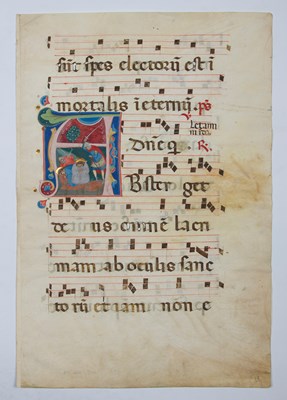 sūt spes electorū est ī
mortalis ī eternū. ps
Letami
ni ī dō
Dnē qs. R
Bster get
de us omnē lacri
mam ab oculis sanc
torū et iam non e